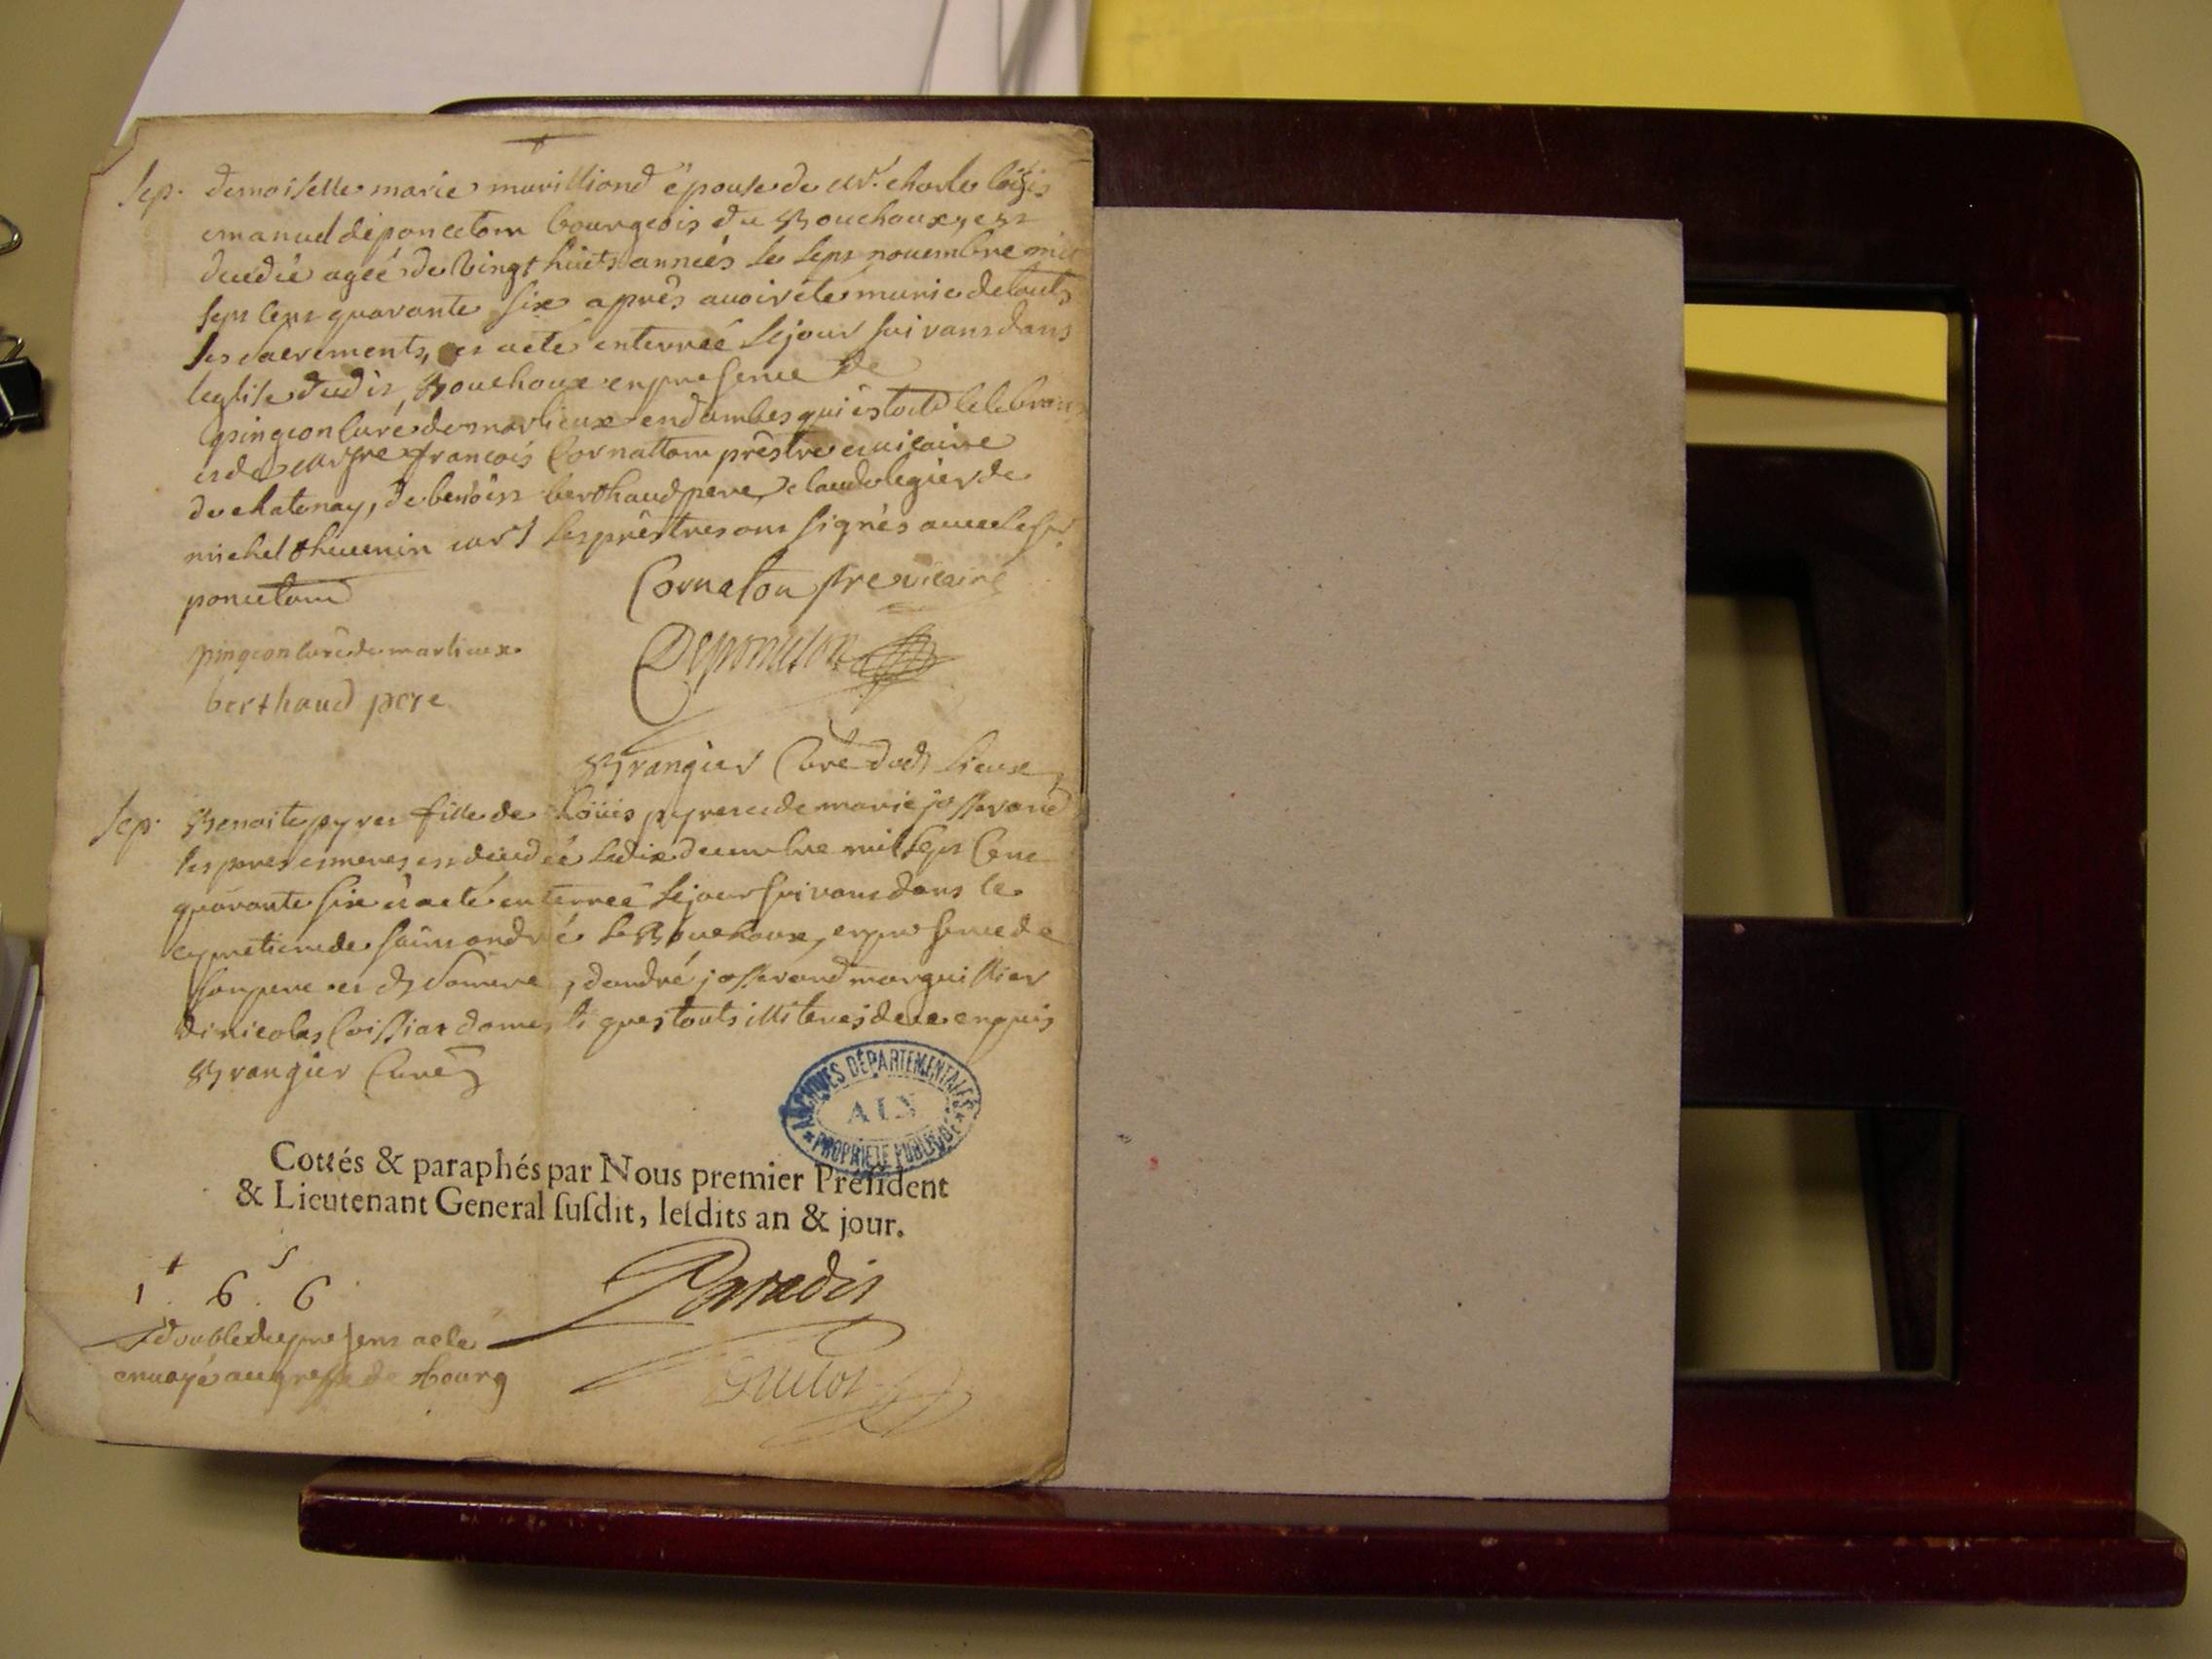 Sep. demoiselle marie murilliond épouse de Mr. charle loüis
emanuel déponceton bourgeois du Bouchoux y est
décedée ageé de vingt huits années le sept novembre mil
sept cens quarante six aprês avoir été munie de touts
les sacrements, et a eté enterreé le jour suivans dans
leglise dudit Bouchoux en presence de
pingeon curé de marlieux en dombes qui
et de françois Cornatton prêstre et vicaire
de chatenay, de benoist berthaud pere, claude legier de
michel thuvenin les prêstres ont signés avec le sr.
poncetond
Cornaton ptre vicaire
Deponceton
pingeon curé de marlieux
berthaud pere
Brangier Curé dudt lieux
Sep. Benoite pyret fille de Loüis pyret et de marie josserand
ses pere et mere est décedée le dix decembre mil sept Cens
quarante six et a eté enterreé le jour suivans dans le
cymetiere de saint andré le Bouchoux, en presence de
son pere et de sa mere, dandré josserand marguillier
de nicolas domestiques touts illiterés de ce enquis
Brangier Curé
ARCHIVES DÉPARTEMENTALES
AIN
PROPRIÉTÉ PUBLIQUE
Cottés & paraphés par Nous premier Préſident
& Lieutenant General ſuſdit, leſdits an & jour.
1t. 6s. 6
Paradis
double du present a eté
envoyé au greffe de bourg